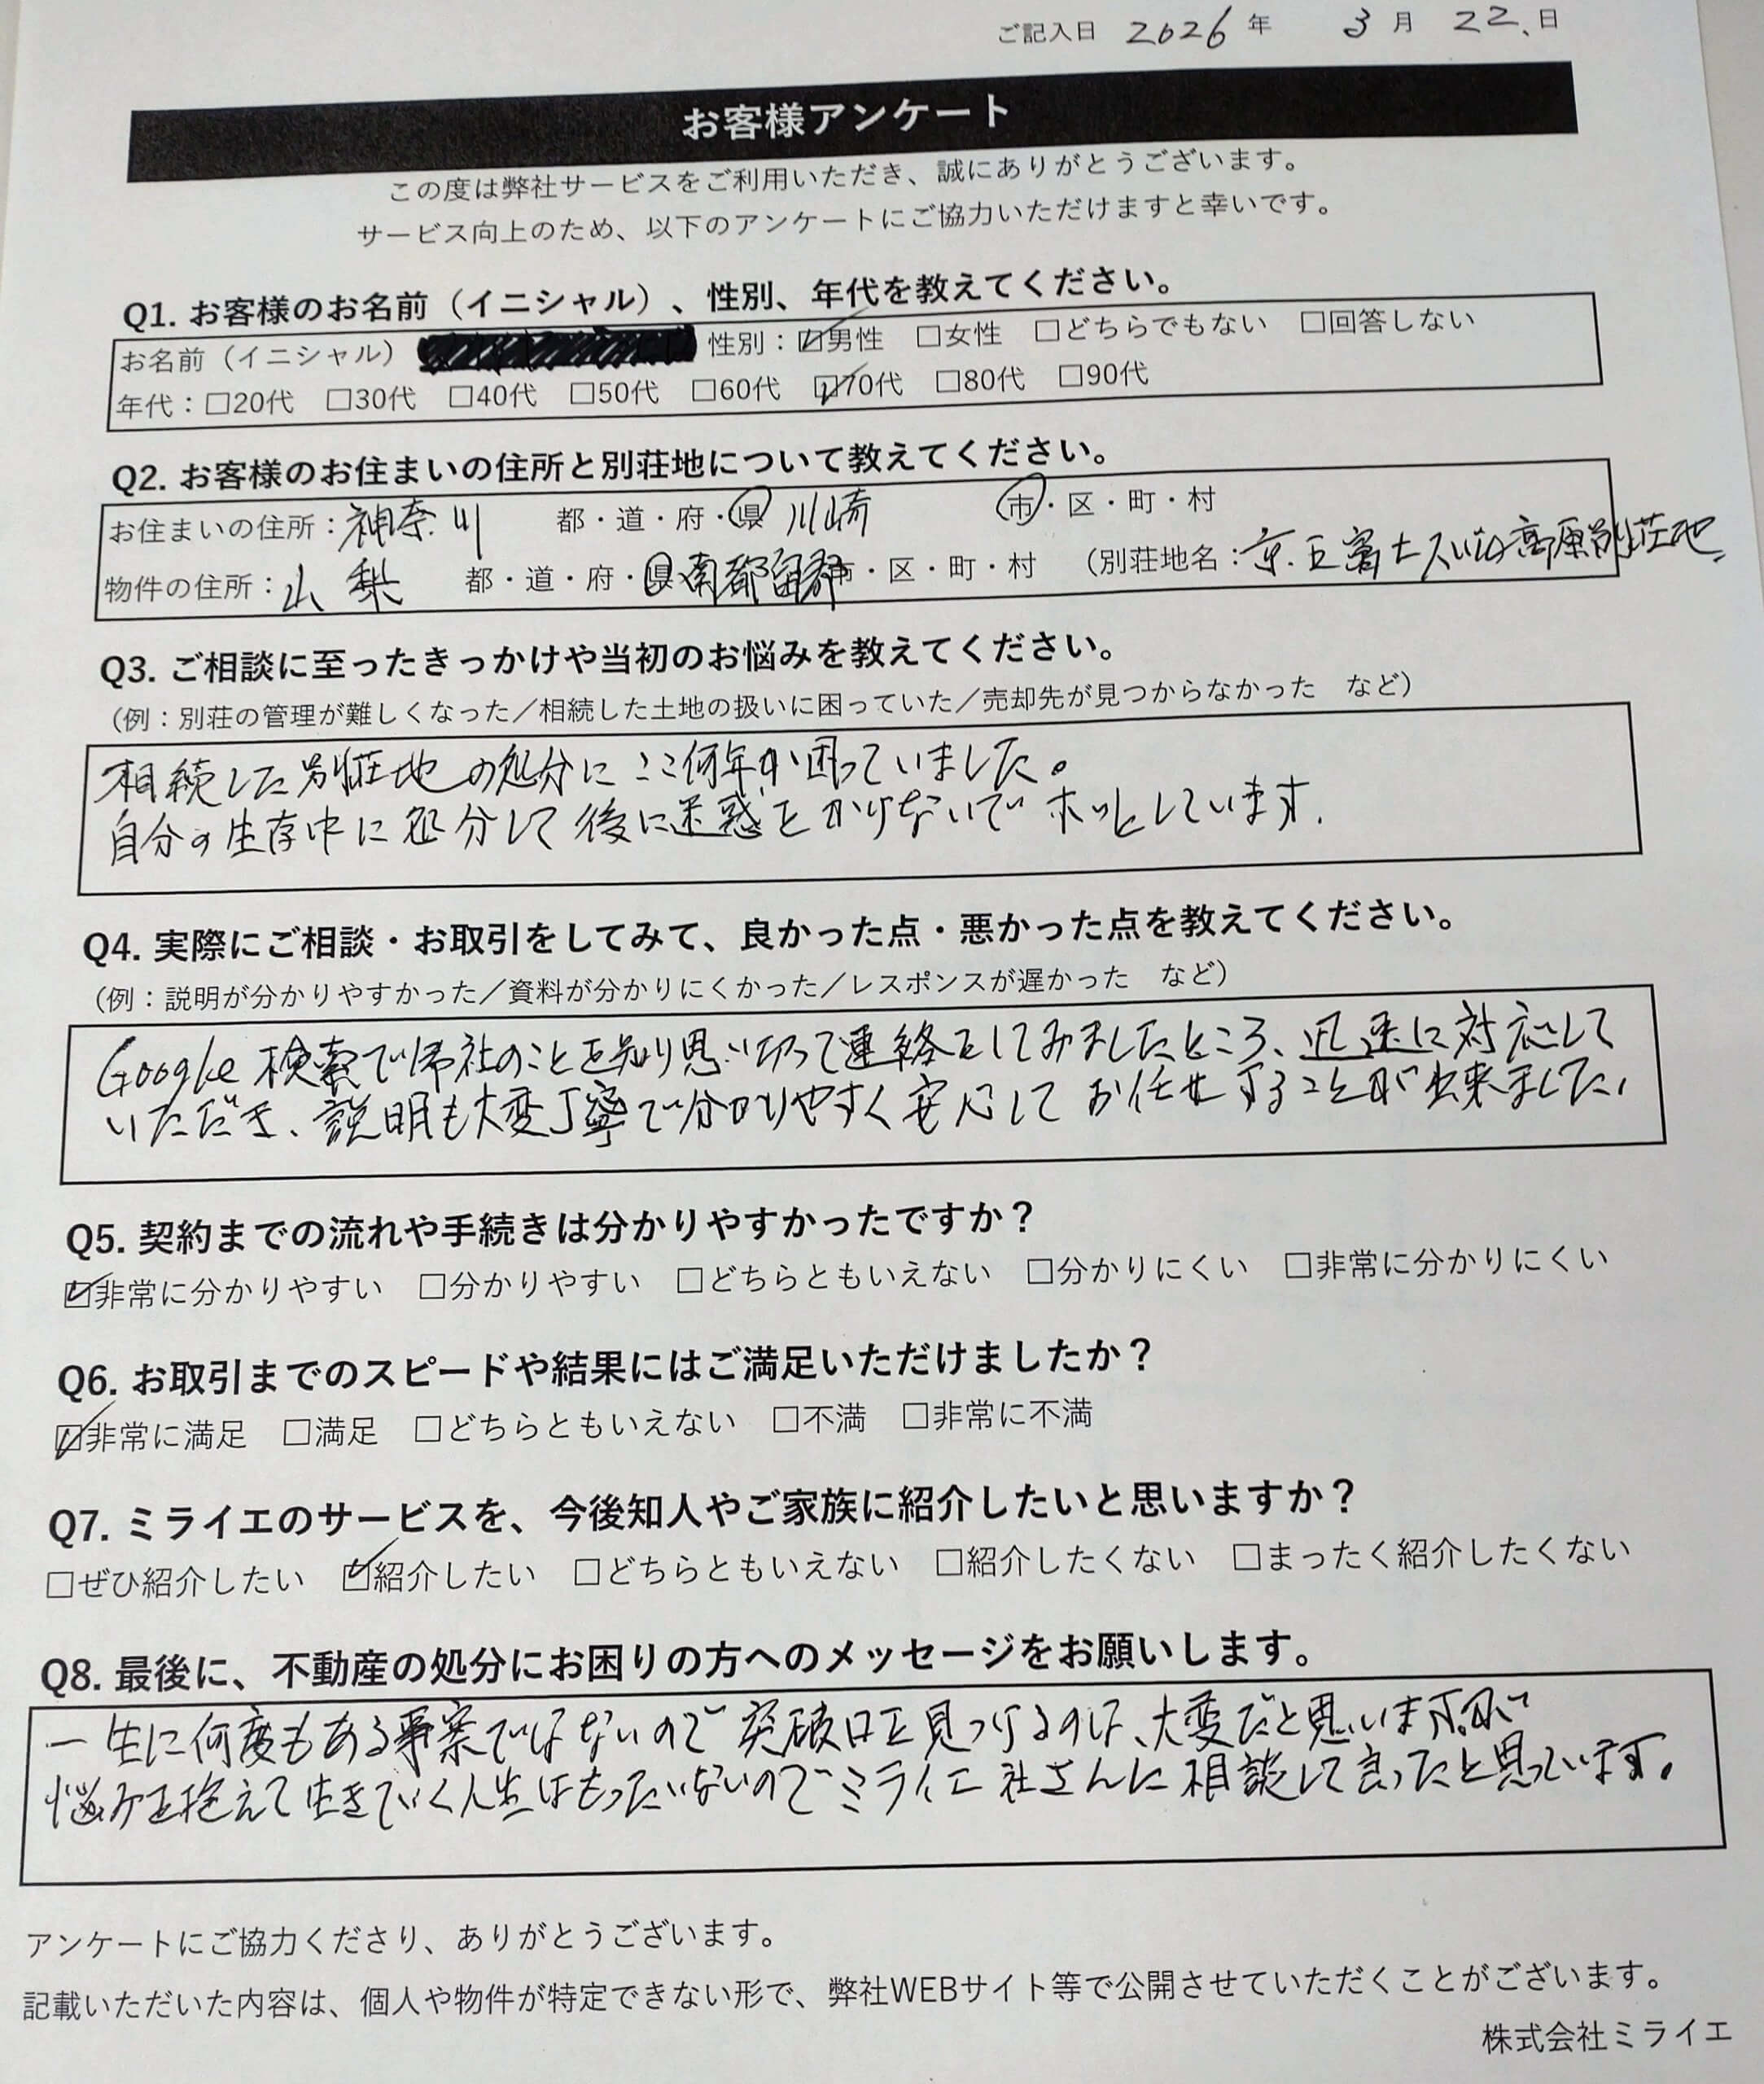 ご記入日 2026 年 3 月 22 日
お客様アンケート
この度は弊社サービスをご利用いただき、誠にありがとうございます。
サービス向上のため、以下のアンケートにご協力いただけますと幸いです。
Q1. お客様のお名前（イニシャル）、性別、年代を教えてください。
お名前（イニシャル） 性別：☑男性 □女性 □どちらでもない □回答しない
年代：□20代 □30代 □40代 □50代 □60代 ☑70代 □80代 □90代
Q2. お客様のお住まいの住所と別荘地について教えてください。
お住まいの住所：神奈川 都・道・府・県 川崎 市・区・町・村
物件の住所：山梨 都・道・府・県 南都留郡 市・区・町・村 （別荘地名：京王富士スバル高原別荘地
Q3. ご相談に至ったきっかけや当初のお悩みを教えてください。
（例：別荘の管理が難しくなった／相続した土地の扱いに困っていた／売却先が見つからなかった など）
相続した別荘地の処分にここ何年か困っていました。
自分の生存中に処分して後に迷惑をかけないでホッとしています.
Q4. 実際にご相談・お取引をしてみて、良かった点・悪かった点を教えてください。
（例：説明が分かりやすかった／資料が分かりにくかった／レスポンスが遅かった など）
Google 検索で御社のことを知り思い切って連絡をしてみましたところ、迅速に対応して
いただき、説明も大変丁寧で分かりやすく安心してお任せすることが出来ました,
Q5. 契約までの流れや手続きは分かりやすかったですか？
☑非常に分かりやすい □分かりやすい □どちらともいえない □分かりにくい □非常に分かりにくい
Q6. お取引までのスピードや結果にはご満足いただけましたか？
☑非常に満足 □満足 □どちらともいえない □不満 □非常に不満
Q7. ミライエのサービスを、今後知人やご家族に紹介したいと思いますか？
□ぜひ紹介したい ☑紹介したい □どちらともいえない □紹介したくない □まったく紹介したくない
Q8. 最後に、不動産の処分にお困りの方へのメッセージをお願いします。
一生に何度もある事案ではないので突破口を見つけるのは、大変だと思いますが
悩みを抱えて生きていく人生はもったいないのでミライエ社さんに相談して良ったと思っています。
アンケートにご協力くださり、ありがとうございます。
記載いただいた内容は、個人や物件が特定できない形で、弊社WEBサイト等で公開させていただくことがございます。
株式会社ミライエ